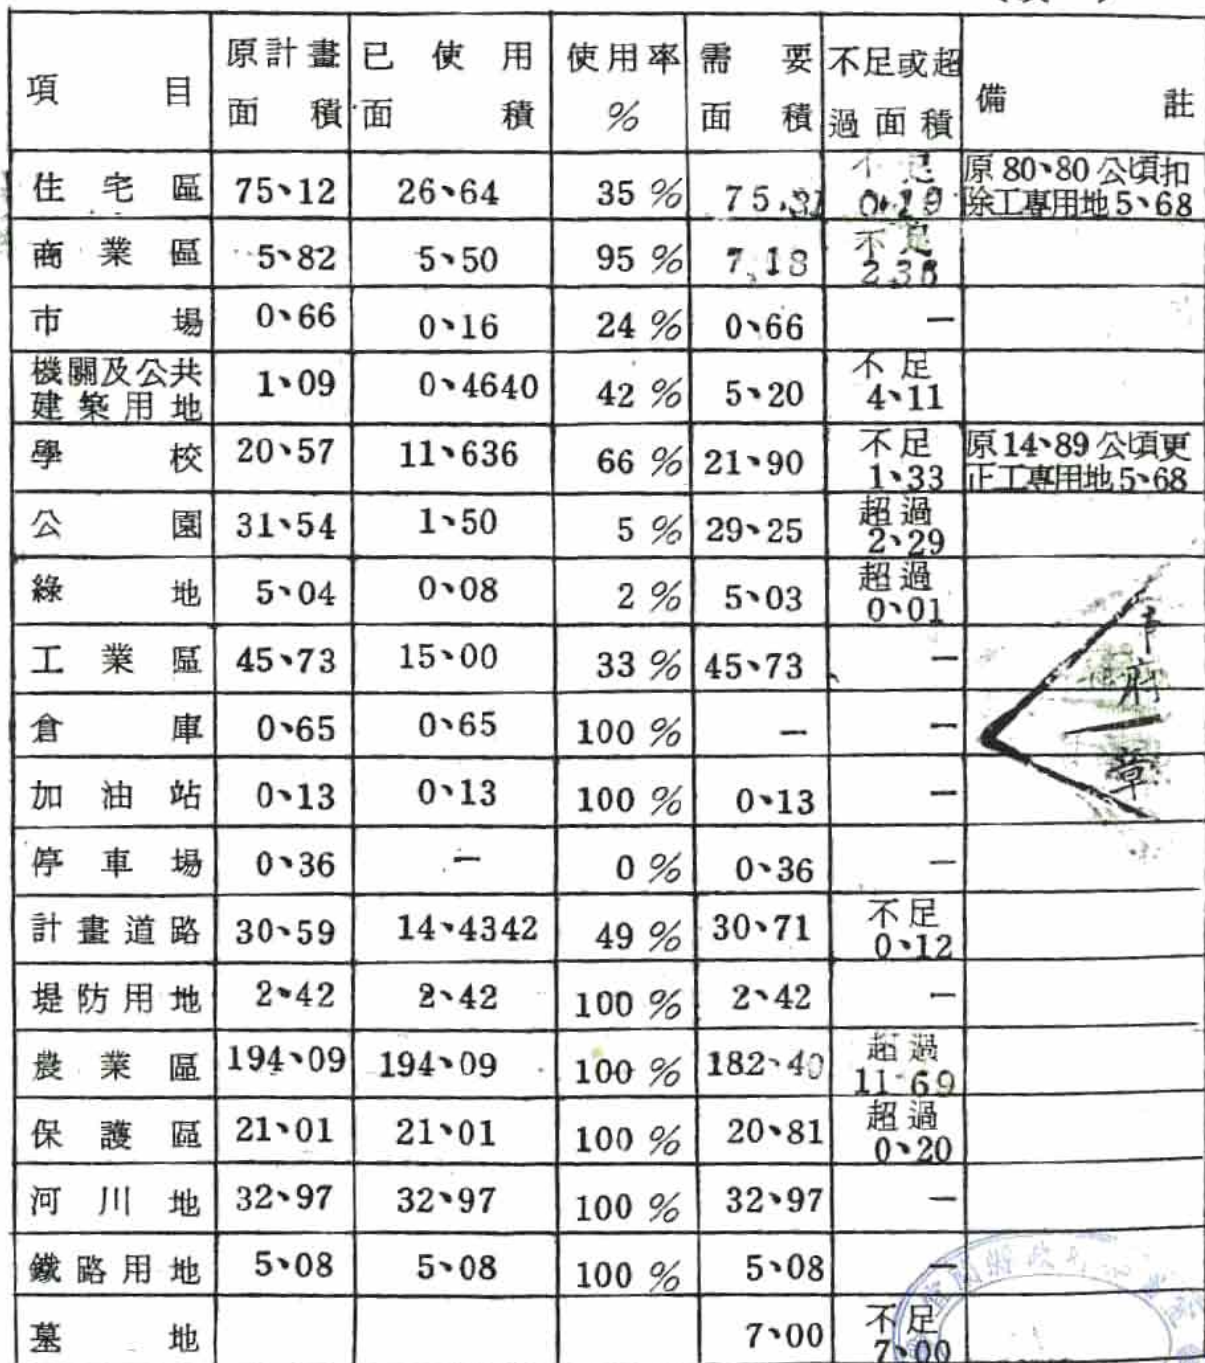 項目 原計畫面積 已使用面積 使用率% 需要面積 不足或超過面積 備註
住宅區 75、12 26、64 35% 75.31 不足 0.19 原80、80公頃扣除工專用地5、68
商業區 5、82 5、50 95% 7.18 不足
市場 0、66 0、16 24% 0、66 —
機關及公共建築用地 1、09 0、4640 42% 5、20 不足 4、11
學校 20、57 11、636 66% 21、90 不足 1、33 原14、89公頃更正工專用地5、68
公園 31、54 1、50 5% 29、25 超過 2、29
綠地 5、04 0、08 2% 5、03 超過 0、01
工業區 45、73 15、00 33% 45、73 —
倉庫 0、65 0、65 100% — —
加油站 0、13 0、13 100% 0、13 —
停車場 0、36 — 0% 0、36 —
計畫道路 30、59 14、4342 49% 30、71 不足 0、12
堤防用地 2、42 2、42 100% 2、42 —
農業區 194、09 194、09 100% 182、40 超過 11、69
保護區 21、01 21、01 100% 20、81 超過 0、20
河川地 32、97 32、97 100% 32、97 —
鐵路用地 5、08 5、08 100% 5、08 —
墓地 7、00 不足 7、00
府
章